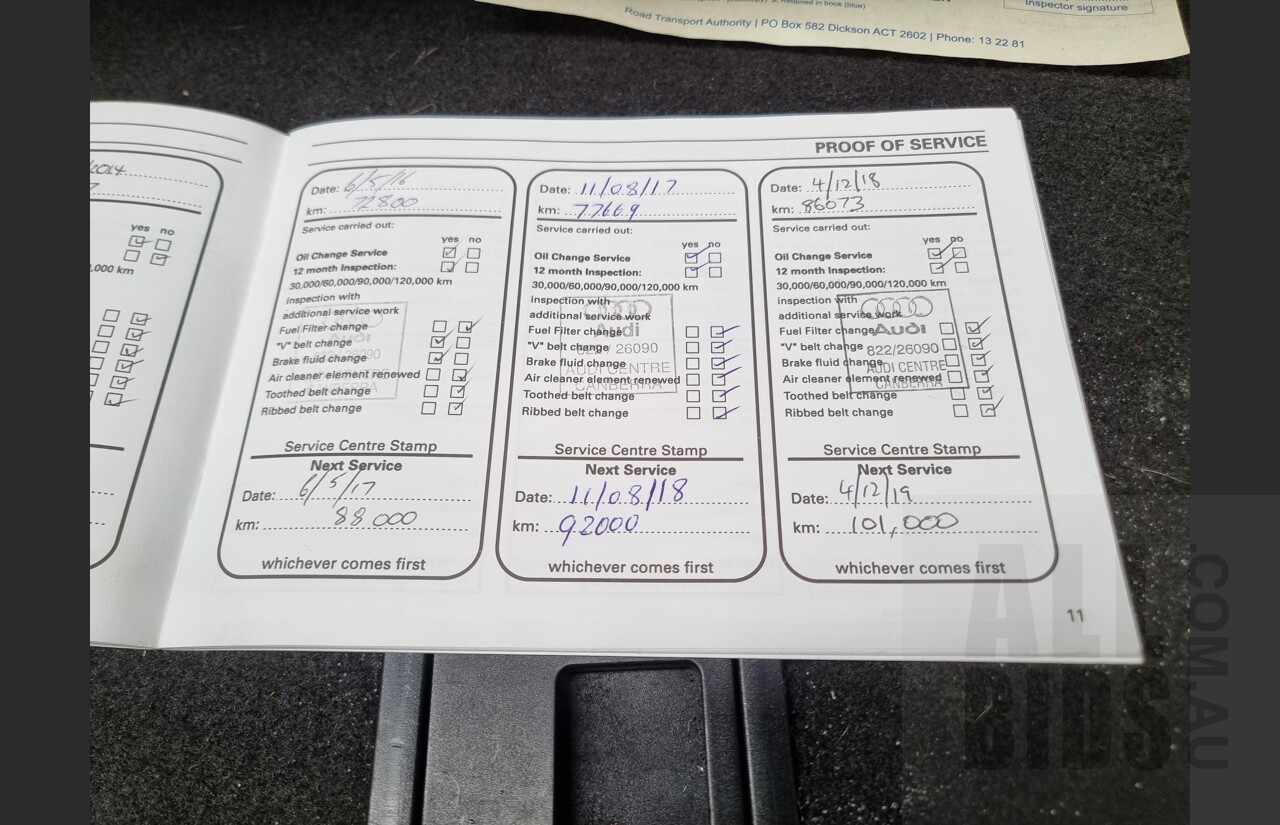 3. Retained in book (blue)
Inspector signature
Road Transport Authority | PO Box 582 Dickson ACT 2602 | Phone: 13 22 81
PROOF OF SERVICE
2014
yes no
,000 km
Date: 6/5/16
km: 72800
Service carried out:
yes no
Oil Change Service
12 month Inspection:
30,000/60,000/90,000/120,000 km
inspection with
additional service work
Fuel Filter change
"V" belt change
Brake fluid change
Air cleaner element renewed
Toothed belt change
Ribbed belt change
Audi
822/26090
AUDI CENTRE
CANBERRA
Service Centre Stamp
Next Service
Date: 6/5/17
km: 88000
whichever comes first
Date: 11/08/17
km: 77669
Service carried out:
yes no
Oil Change Service
12 month Inspection:
30,000/60,000/90,000/120,000 km
inspection with
additional service work
Fuel Filter change
"V" belt change
Brake fluid change
Air cleaner element renewed
Toothed belt change
Ribbed belt change
Audi
822/26090
AUDI CENTRE
CANBERRA
Service Centre Stamp
Next Service
Date: 11/08/18
km: 92000
whichever comes first
Date: 4/12/18
km: 86073
Service carried out:
yes no
Oil Change Service
12 month Inspection:
30,000/60,000/90,000/120,000 km
inspection with
additional service work
Fuel Filter change
"V" belt change
Brake fluid change
Air cleaner element renewed
Toothed belt change
Ribbed belt change
Audi
822/26090
AUDI CENTRE
CANBERRA
Service Centre Stamp
Next Service
Date: 4/12/19
km: 101,000
whichever comes first
11
ALL
BIDS
.COM.AU